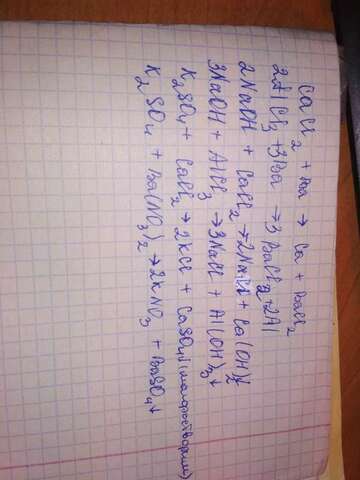 CaCl₂ + Ba → Ca + BaCl₂
2AlCl₃ + 3Ba → 3BaCl₂ + 2Al
2NaOH + CaCl₂ → 2NaCl + Ca(OH)₂
3NaOH + AlCl₃ → 3NaCl + Al(OH)₃↓
K₂SO₄ + CaCl₂ → 2KCl + CaSO₄↓(малорастворим)
K₂SO₄ + Ba(NO₃)₂ → 2KNO₃ + BaSO₄↓